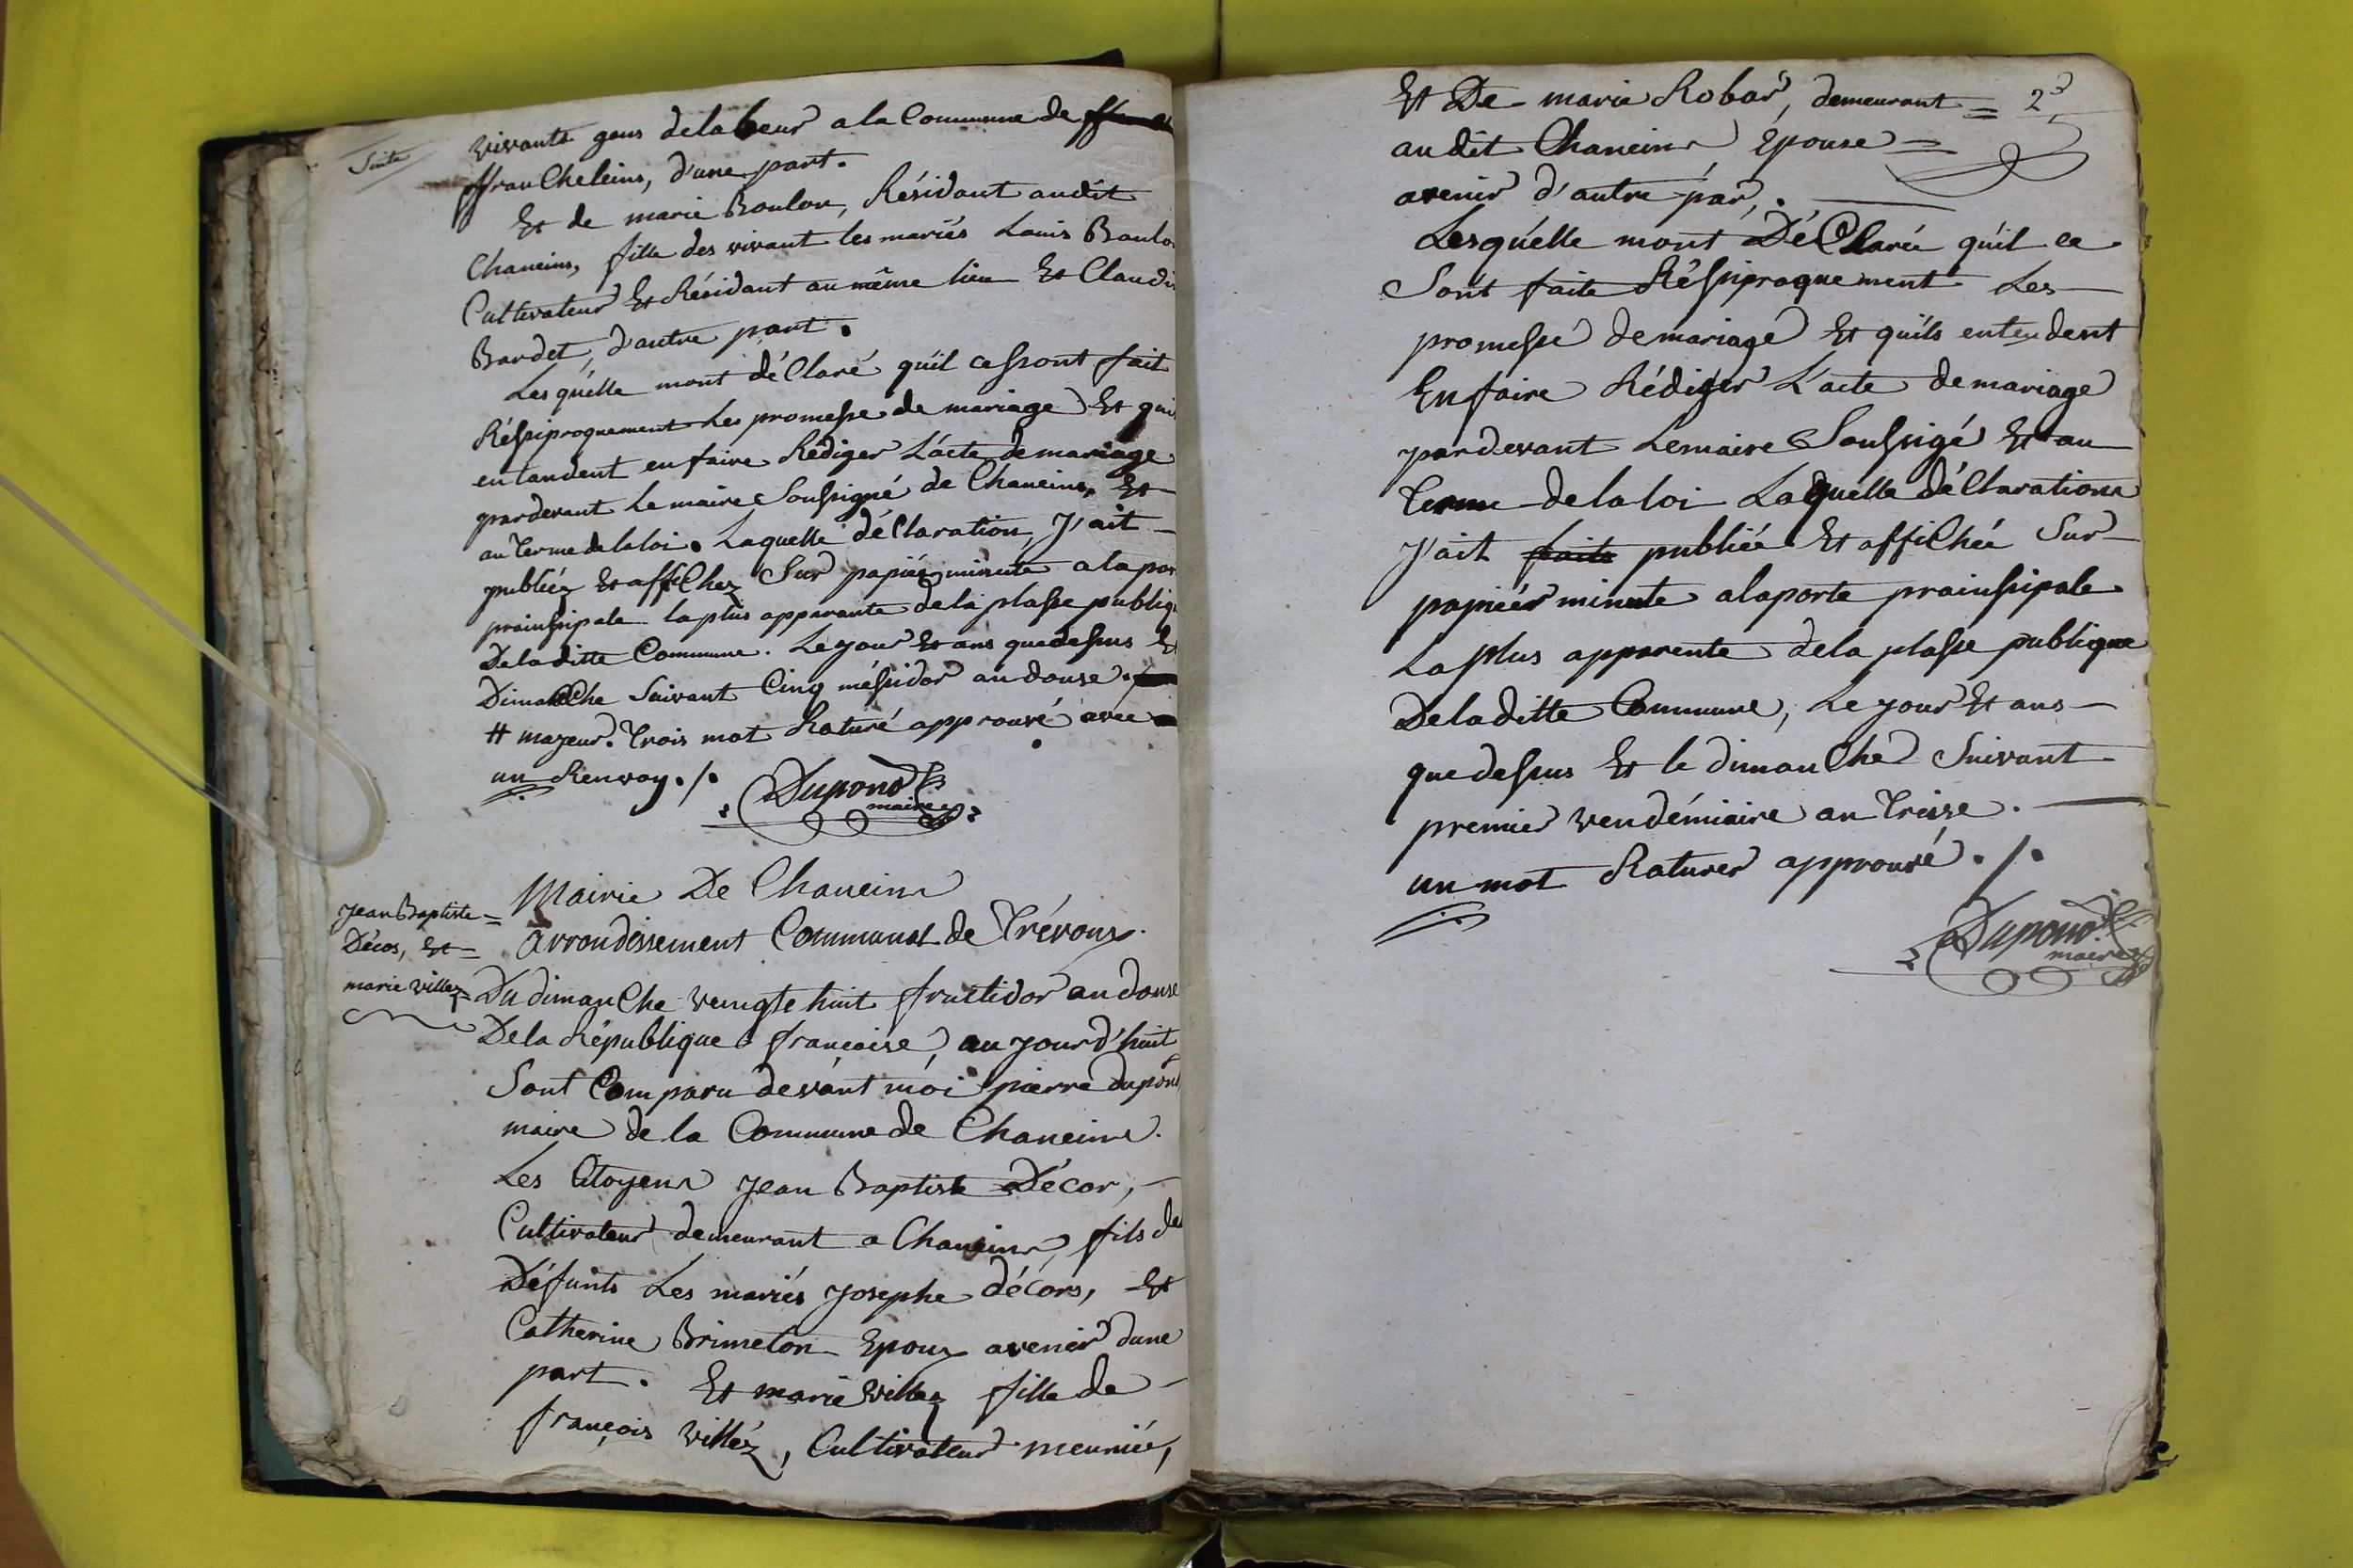 Suite
vivants gens delabeur a la Commune de
ffranCheleins, d'une part.
Et de marie Boulon, Résidant audit
Chaneins, fille des vivant les mariés Louis Boulo
Cultivateur Et Résidant au même lieu Et Claudi
Bardet, d'autre part.
Les quelle mont déClaré quil cessont fait
Réssiproquement Les promesse de mariage Et qui
entandent en faire Rédiger L'acte de mariage
pardevant Le maire Soussigné de Chaneins, Et
au terme de la loi. Laquelle déClaration, J'ait
publiéz Et affiChez Sur papiér minute a la por
prainssipale la plus apparante de la plasse publiq
De la ditte Commune. Le jour Et ans que dessus Et
DimanChe Suivant Cinq méssidor an douse.
# majeur. Trois mot Raturé approuvé avec
un Renvoy. /.
Dupond
maire
Mairie De Chaneins
Jean Baptiste =
Décos, Et =
marie villez =
Arrondissement Communal de Trévoux.
Du dimanChe veingte huit fructidor an douse
De la République francaise, au jourd'huit
Sont Comparu devant moi pierre dupond
maire de la Commune de Chaneins.
Les Citoyens Jean Baptiste Décor,
Cultivateur demeurant a Chaneins, fils de
Défunts Les mariés Josephe décors, Et
Catherine Brimeton Epoux avenir dune
part. Et marie villez fille de
françois villéz, Cultivateur meunié,
Et De marie Robar, demeurant = 23
au dit Chaneins Epouse =
avenir d'autre par,.
Lesquélle mont DéClarée qu'il ce
Sont faite Réssiproquement Les
promessé de mariage Et quils entendent
En faire Rédiger L'acte de mariage
pardevant Le maire Soussigé Et au
Terme de la loi Laquelle déClarations
J'ait faite publiée Et affiChée Sur
papiér minute a la porte prainssipale
La plus apparente de la plasse publique
De la ditte Commune, Le jour Et ans
que dessus Et le dimanChe Suivant
premier vendémiaire an Treize.
un mot Raturer approuvé. /.
Dupond
maire